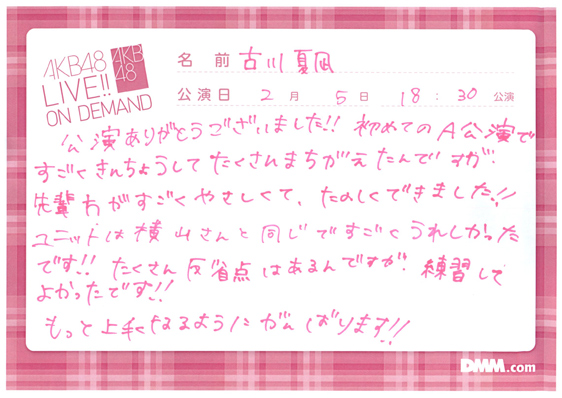 AKB48
LIVE!!
ON DEMAND
AKB
48
名前 古川夏凪
公演日 2月 5日 18:30 公演
公演ありがとうございました!! 初めてのA公演で
すごくきんちょうしてたくさんまちがえたんですが
先輩方がすごくやさしくて、たのしくできました!!
ユニットは横山さんと同じですごくうれしかった
です!! たくさん反省点はあるんですが 練習して
よかったです!!
もっと上手くなるようにがんばります!!
DMM.com